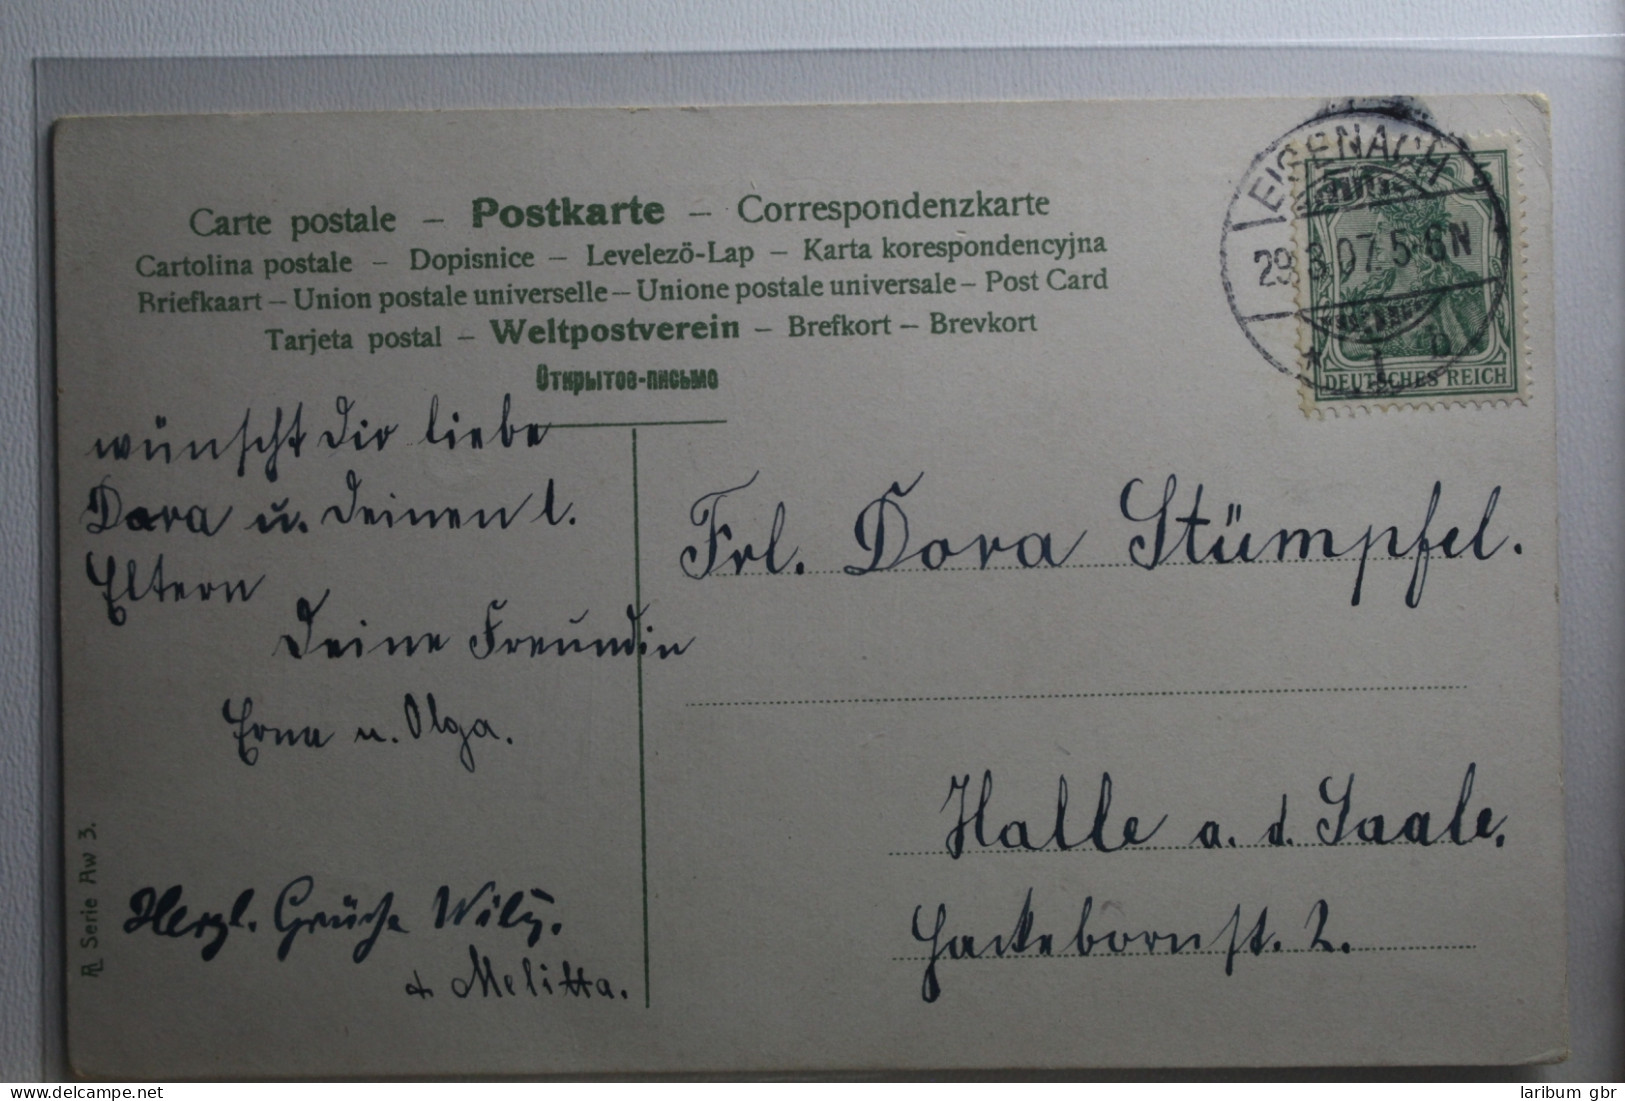 Carte postale – Postkarte – Correspondenzkarte
Cartolina postale – Dopisnice – Levelező-Lap – Karta korespondencyjna
Briefkaart – Union postale universelle – Unione postale universale – Post Card
Tarjeta postal – Weltpostverein – Brefkort – Brevkort
Открытое-письмо
EISENACH
29.3.07.5-6N
* 1 b
DEUTSCHES REICH
wünscht Dir liebe
Dora u. Deinen l.
Eltern
Deine Freundin
Erna u. Olga.
Herzl. Grüße Willy.
+ Melitta.
Frl. Dora Stümpfel.
Halle a. d. Saale.
Hackebornst. 2.
Serie Aw 3.
delcampe.net
laribum gbr